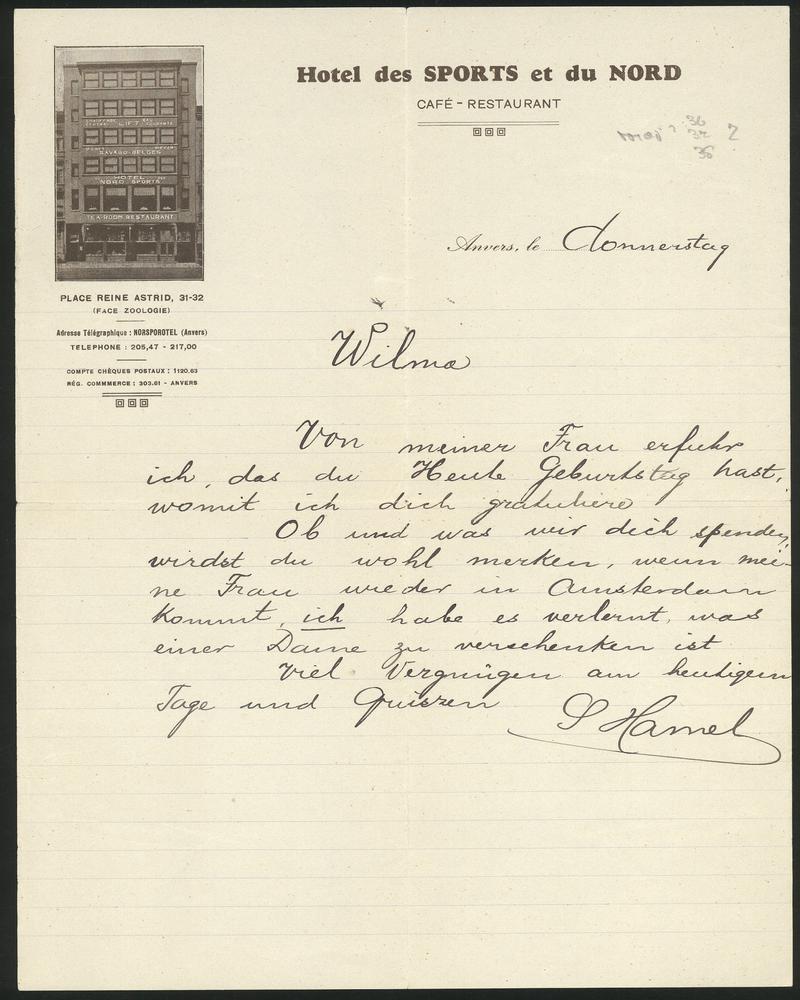 Hotel des SPORTS et du NORD
CAFÉ - RESTAURANT
36
32
36
?
HOTEL
NORD SPORTS
TEA-ROOM RESTAURANT
PLACE REINE ASTRID, 31-32
(FACE ZOOLOGIE)
Adresse Télégraphique : NORSPOROTEL (Anvers)
TELEPHONE : 205,47 - 217,00
COMPTE CHÈQUES POSTAUX : 1120.63
RÉG. COMMMERCE : 303.61 - ANVERS
Anvers, le Donnerstag
Wilma
Von meiner Frau erfuhr
ich, das du Heute Geburtstag hast,
womit ich dich gratuliere
Ob und was wir dich spenden,
wirdst du wohl merken, wenn mei-
ne Frau wieder in Amsterdam
kommt, ich habe es verlernt, was
einer Dame zu verschenken ist
Viel Vergnügen am heutigem
Tage und Grüszen
S Hamel